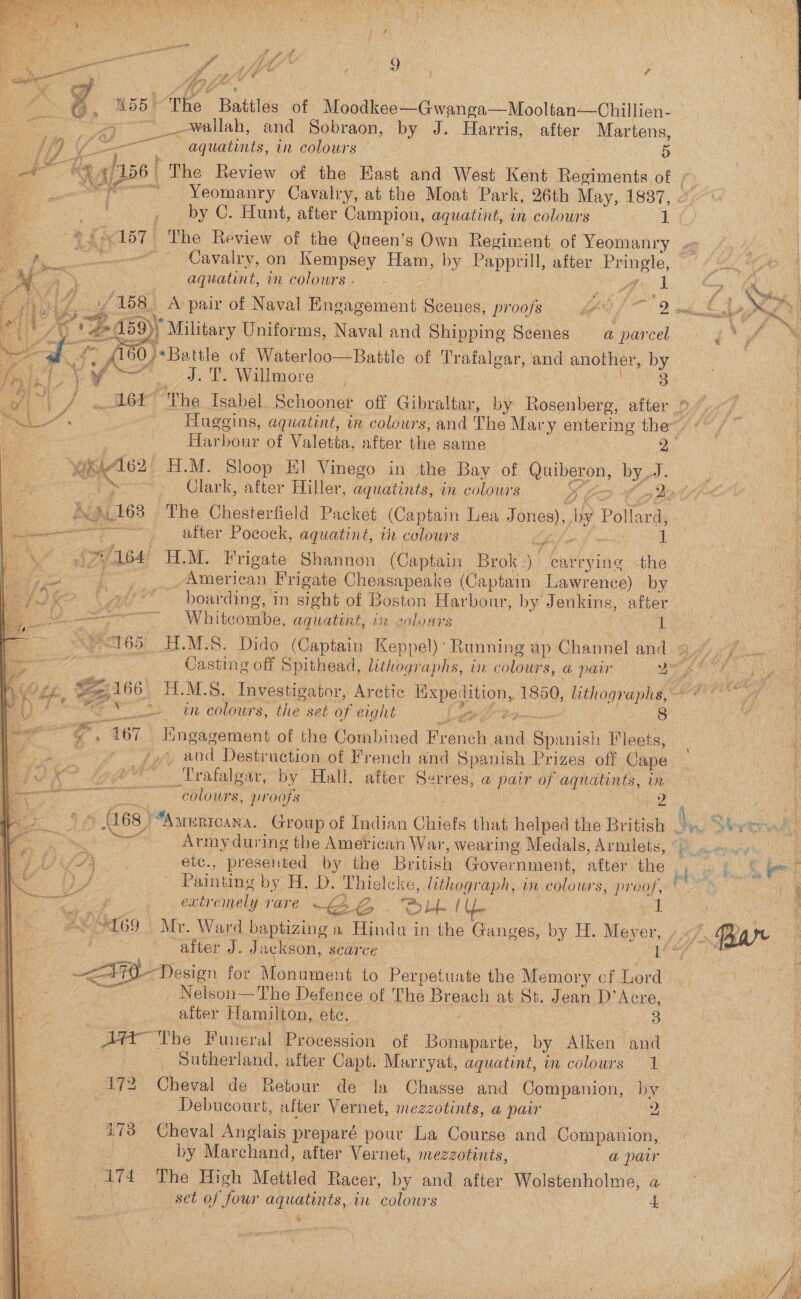 9
155 The Battles of Moodkee—Gwanga—Mooltan—Chillien-
wallah, and Sobraon, by J. Harris, after Martens,
aquatints, in colours 5
156 The Review of the East and West Kent Regiments of
Yeomanry Cavalry, at the Moat Park, 26th May, 1837,
by C. Hunt, after Campion, aquatint, in colours 1
157 The Review of the Queen's Own Regiment of Yeomanry
Cavalry, on Kempsey Ham, by Papprill, after Pringle,
aquatint, in colours 1
158 A pair of Naval Engagement Scenes, proofs 2
159 Military Uniforms, Naval and Shipping Scenes a parcel
160 Battle of Waterloo—Battle of Trafalgar, and another, by
J. T. Willmore 3
161 The Isabel Schooner off Gibraltar, by Rosenberg, after
Huggins, aquatint, in colours, and The Mary entering the
Harbour of Valetta, after the same 2
162 H.M. Sloop El Vinego in the Bay of Quiberon, by J.
Clark, after Hiller, aquatints, in colours 2
163 The Chesterfield Packet (Captain Lea Jones), by Pollard,
after Pocock, aquatint, in colours 1
164 H.M. Frigate Shannon (Captain Brok ) carrying the
American Frigate Cheasapeake (Captain Lawrence) by
boarding, in sight of Boston Harbour, by Jenkins, after
Whitcombe, aquatint, in colours 1
165 H.M.S. Dido (Captain Keppel) Running up Channel and
Casting off Spithead, lithographs, in colours, a pair 2
166 H.M.S. Investigator, Arctic Expedition, 1850, lithographs,
in colours, the set of eight 8
167 Engagement of the Combined French and Spanish Fleets,
and Destruction of French and Spanish Prizes off Cape
Trafalgar, by Hall, after Serres, a pair of aquatints, in
colours, proofs 2
168 Americana. Group of Indian Chiefs that helped the British
Army during the American War, wearing Medals, Armlets,
etc., presented by the British Government, after the
Painting by H. D. Thielcke, lithograph, in colours, proof,
extremely rare 1
169 Mr. Ward baptizing a Hindu in the Ganges, by H. Meyer,
after J. Jackson, scarce 1
170 Design for Monument to Perpetuate the Memory of Lord
Nelson—The Defence of The Breach at St. Jean D'Acre,
after Hamilton, etc. 3
171 The Funeral Procession of Bonaparte, by Alken and
Sutherland, after Capt. Marryat, aquatint, in colours 1
172 Cheval de Retour de la Chasse and Companion, by
Debucourt, after Vernet, mezzotints, a pair 2
173 Cheval Anglais preparé pour La Course and Companion,
by Marchand, after Vernet, mezzotints, a pair
174 The High Mettled Racer, by and after Wolstenholme, a
set of four aquatints, in colours 4